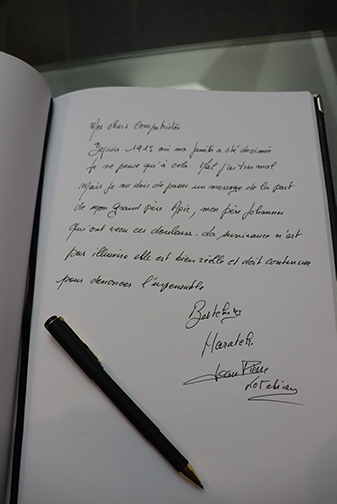 Mes chers compatriotes
Depuis 1915 où ma famille a été decimée
Je ne pense qu'à cela. Mal j'ai très mal
Mais je me dois de passer un message de la part
de mon Grand père Apic, mon père Johannes
qui ont vecu ces douleurs. La survivance n'est
pas illusoire elle est bien réelle et doit continuer
pour denoncer l'impensable
Jean Pierre